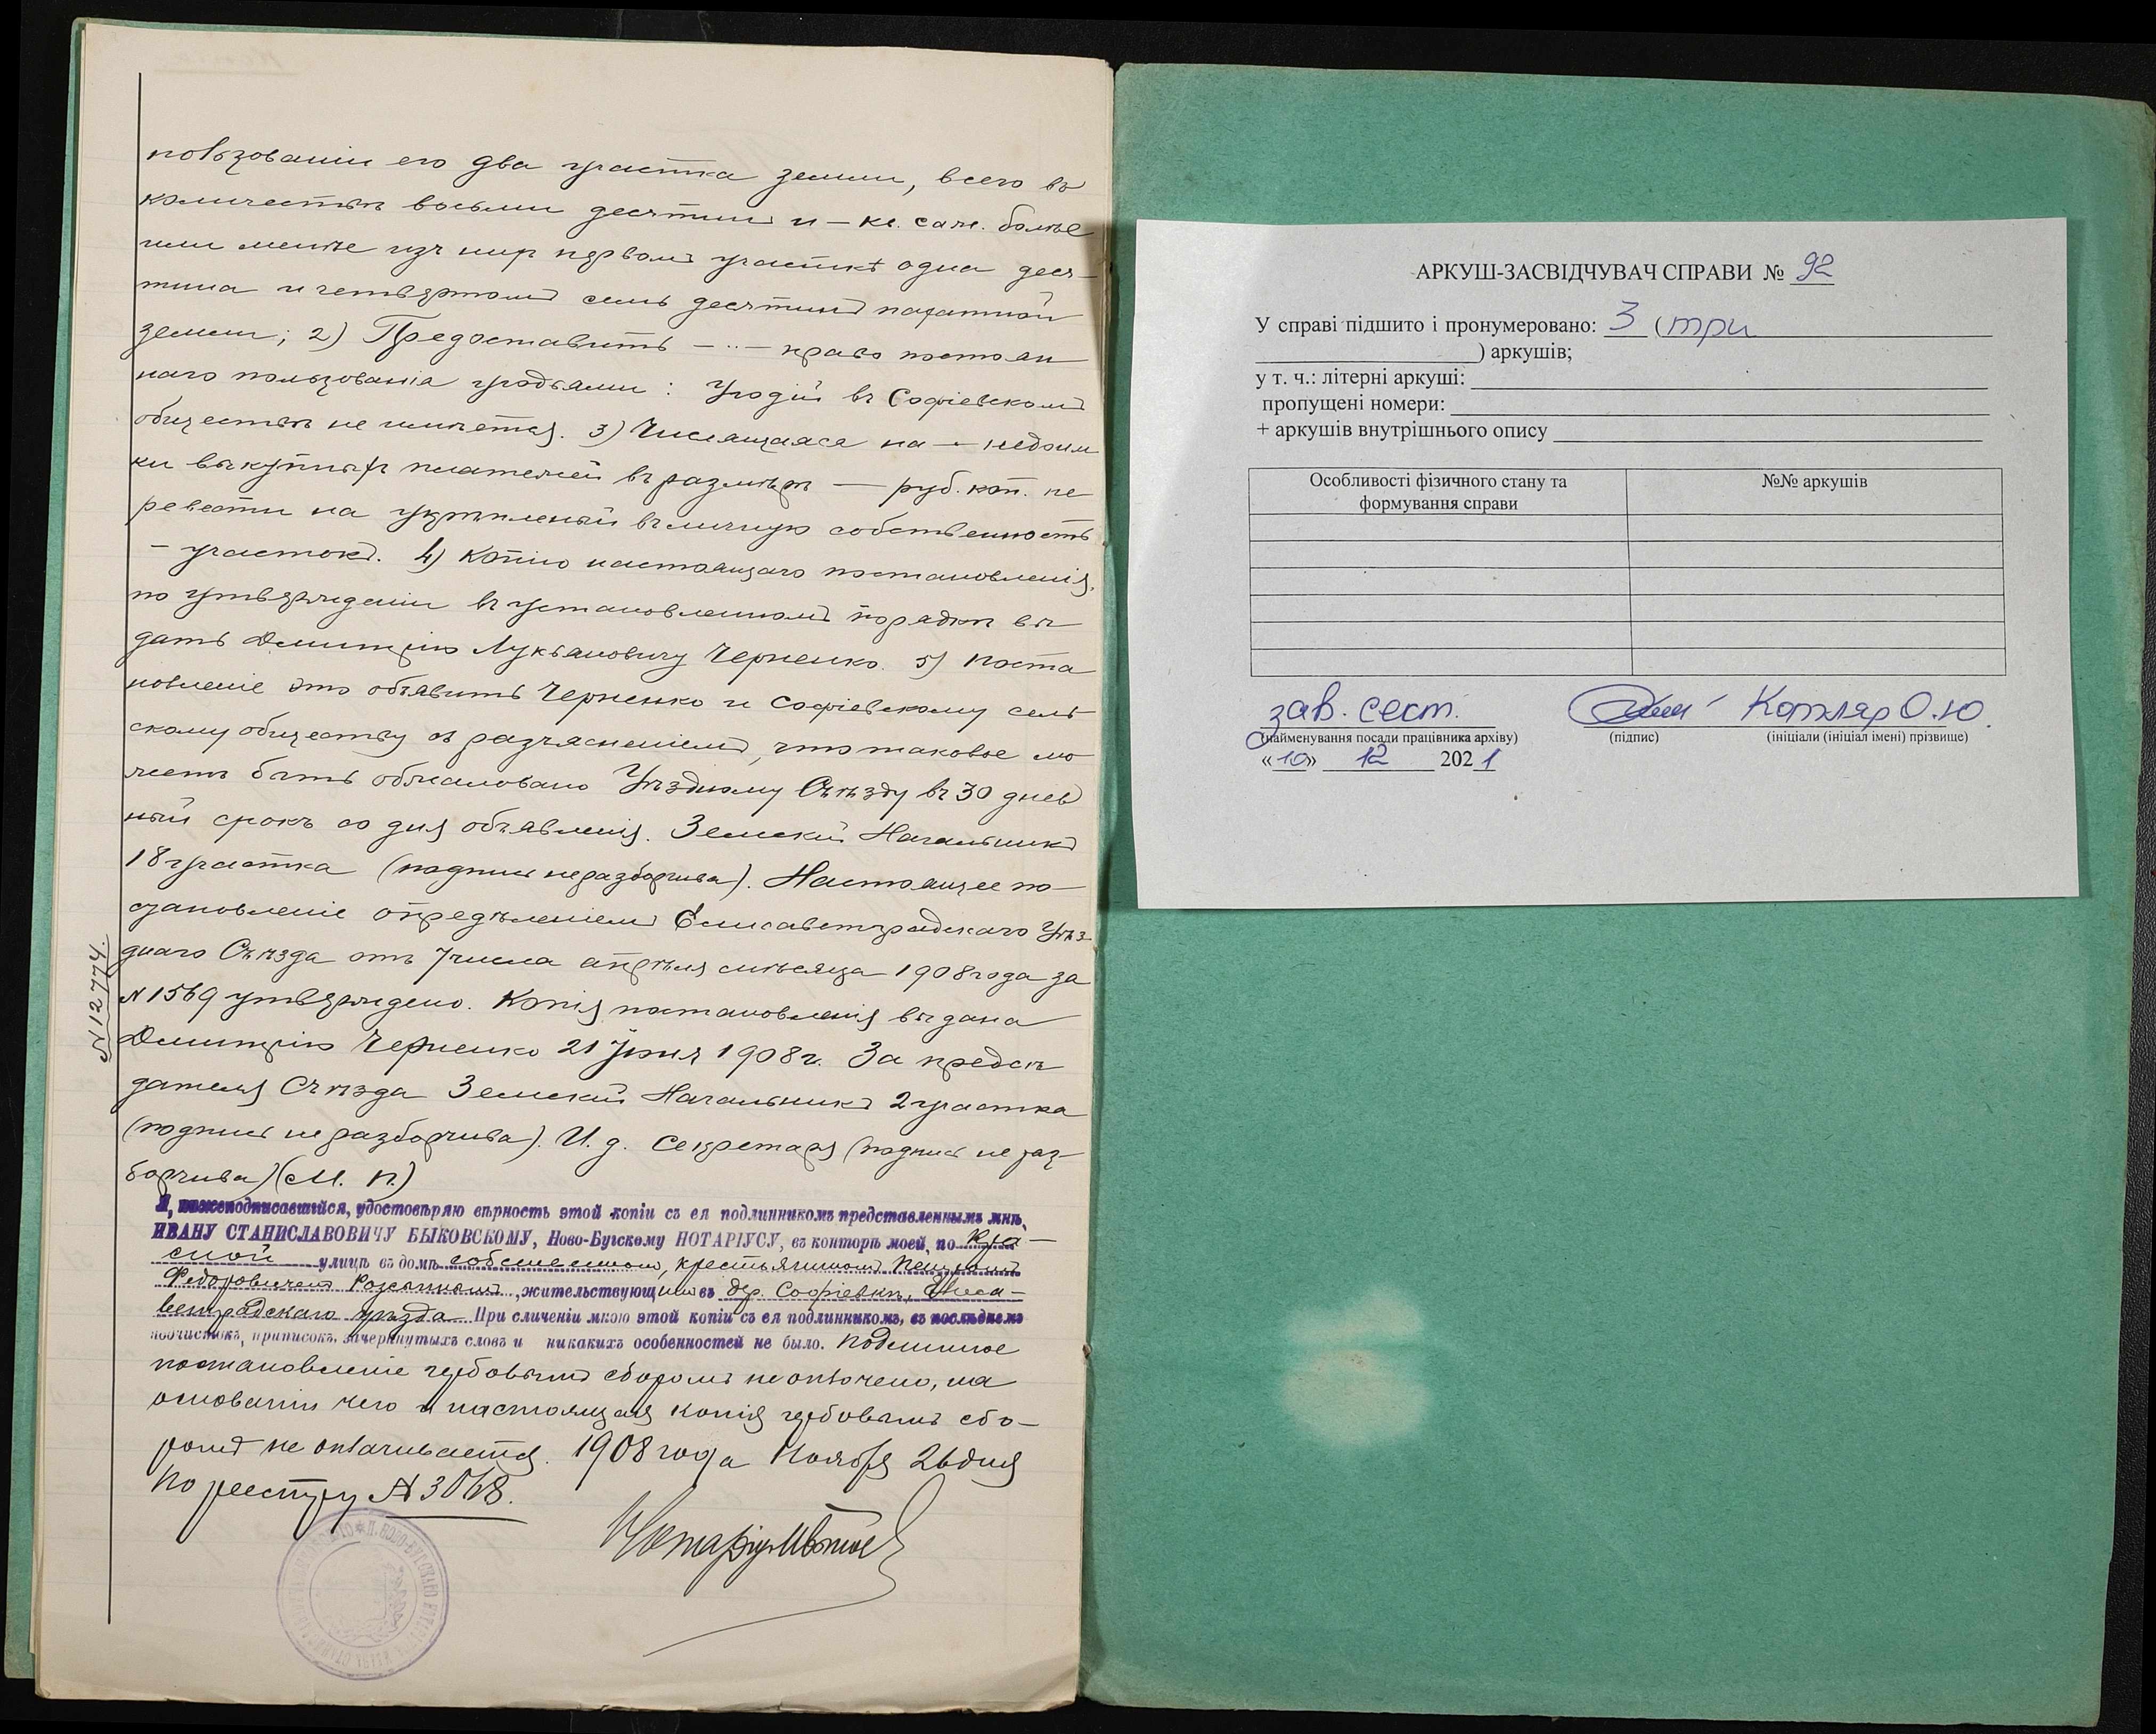 пользованіи его два участка земли, всего въ
количествѣ восьми десятинъ и — кв. саж. болѣе
или менѣе изъ нихъ первомъ участкѣ одна деся-
тина и четвертомъ семь десятинъ пахатной
земли; 2) Предоставить — „ — право постоян
наго пользованія угодьями: Угодій въ Софіевскомъ
обществѣ не имѣется. 3) Числящаяся на — недоим
ки выкупныхъ платежей въ размѣрѣ — руб. коп. пе
ревести на укрѣпленный въ личную собственность
— участокъ. 4) Копію настоящаго постановленія,
по утвержденіи въ установленномъ порядкѣ вы
дать Дмитрію Лукьяновичу Черненко. 5) Поста
новленіе это объявить Черненко и Софіевскому сель
скому обществу съ разъясненіемъ, что таковое мо
жетъ быть обжаловано Уѣздному Съѣзду въ 30 днев
ный срокъ со дня объявленія. Земскій Начальникъ
18 участка (подпись неразборчива). Настоящее по-
становленіе опредѣленіемъ Елисаветградскаго Уѣз
днаго Съѣзда отъ 7 числа апрѣля мѣсяца 1908 года за
№ 1569 утверждено. Копія постановленія выдана
Дмитрію Черненко 21 Іюня 1908 г. За предсѣ
дателя Съѣзда Земскій Начальникъ 2 участка
(подпись неразборчива). И. д. Секретаря (подпись нераз-
борчива) (М. П.)
№ 12774.
Я, нижеподписавшійся, удостовѣряю вѣрность этой копіи съ ея подлинникомъ представленнымъ мнѣ,
ИВАНУ СТАНИСЛАВОВИЧУ БЫКОВСКОМУ, Ново-Бугскому НОТАРІУСУ, въ конторѣ моей, по Кра-
сной улицѣ въ домѣ собственномъ, крестьяниномъ
Федоровичемъ жительствующимъ въ дер. Софіевкѣ, Елиса-
ветградскаго уѣзда При сличеніи мною этой копіи съ ея подлинникомъ, въ послѣднемъ
подчистокъ, приписокъ, зачеркнутыхъ словъ и никакихъ особенностей не было. Подлинное
постановленіе гербовымъ сборомъ не оплочено, на
основаніи чего и настоящая копія гербовымъ сбо-
ромъ не оплачивается. 1908 года Ноября 26 дня
По реестру № 3068.
Нотаріусъ
АРКУШ-ЗАСВІДЧУВАЧ СПРАВИ № 92
У справі підшито і пронумеровано: 3 (три
) аркушів;
у т. ч.: літерні аркуші:
пропущені номери:
+ аркушів внутрішнього опису
Особливості фізичного стану та формування справи
№№ аркушів
зав. сект. Котляр О.Ю.
(найменування посади працівника архіву) (підпис) (ініціали (ініціал імені) прізвище)
«10» 12 2021